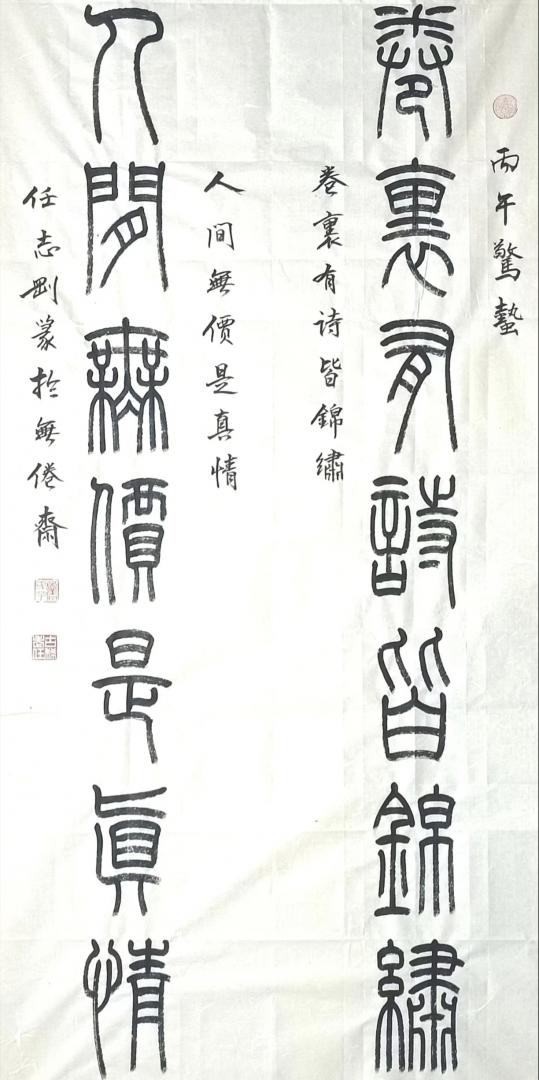 丙午驚蟄
卷裏有詩皆錦繡
卷裏有诗皆錦繡
人間無價是真情
人間無價是眞情
任志剛篆於無倦齋